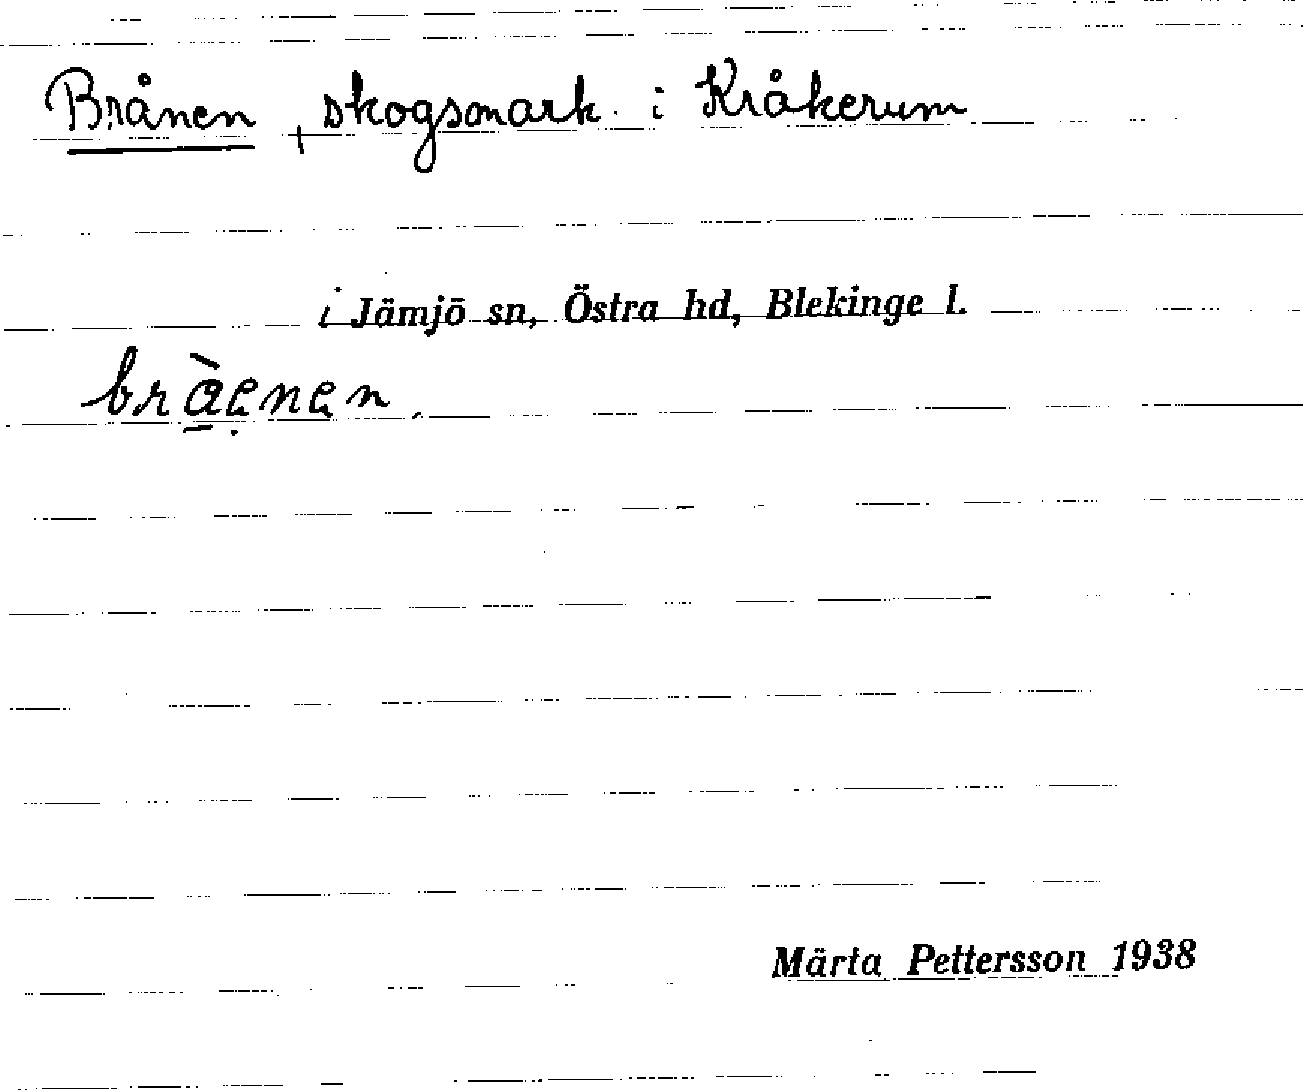 Brånen, skogsmark i Kråkerum
i Jämjö sn, Östra hd, Blekinge l.
bràenen.
Märta Pettersson 1938